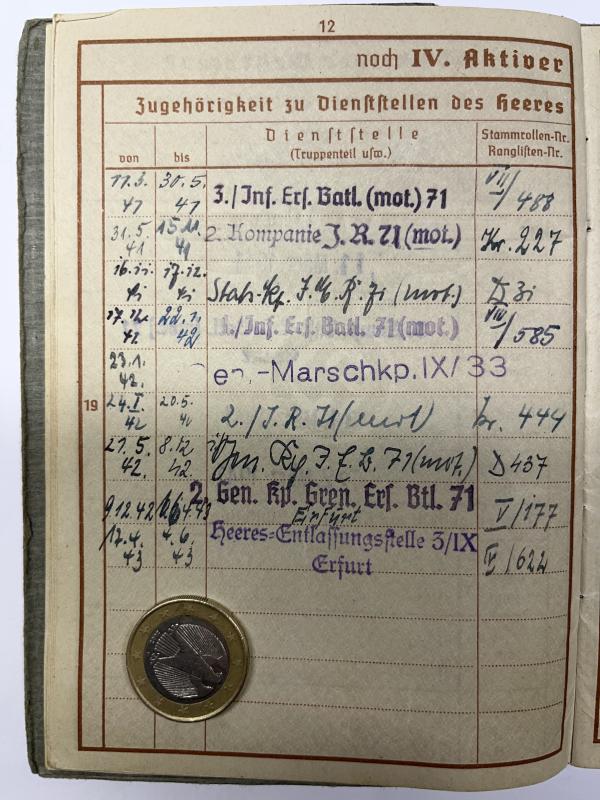 12
noch IV. Aktiver
Zugehörigkeit zu Dienststellen des Heeres
von bis Dienststelle (Truppenteil usw.) Stammrollen-Nr. Ranglisten-Nr.
11.3. 41 30.5. 41 3./Inf. Ers. Batl. (mot.) 71 VII/488
31.5. 41 15.11. 41 2. Kompanie J. R. 71 (mot.) Kr. 227
16.11. 41 17.12. 41 Stabs-Kp. (mot.) D 31
22.1. 42 1./Inf. Ers. Batl. 71 (mot.) VIII/585
23.1. 42. Gen.-Marschkp. IX/33
19
24.I. 42 20.5. 2./J.R. 71 (mot) Kr. 444
21.5. 42. 8.12 42 Gen. Kp. J.E.B. 71 (mot.) D 437
9 12 42 2. Gen. Kp. Gren. Ers. Btl. 71 V/177
Erfurt
17.4. 43 4.6. 43 Heeres-Entlassungsstelle 3/IX /622
Erfurt